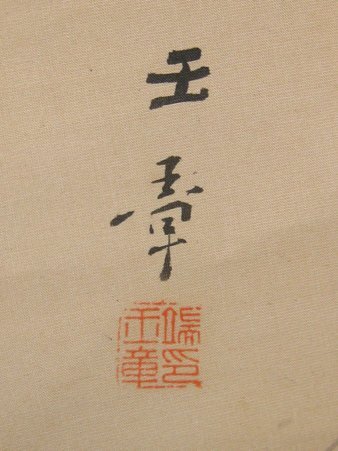 玉章
端印
玉章